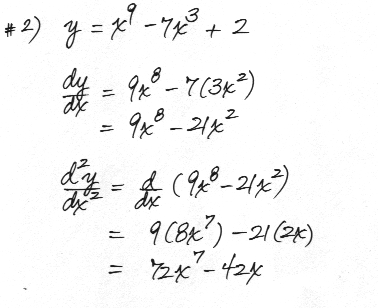 #2) y = x⁹ - 7x³ + 2
dy/dx = 9x⁸ - 7(3x²)
= 9x⁸ - 21x²
d²y/dx² = d/dx (9x⁸ - 21x²)
= 9(8x⁷) - 21(2x)
= 72x⁷ - 42x